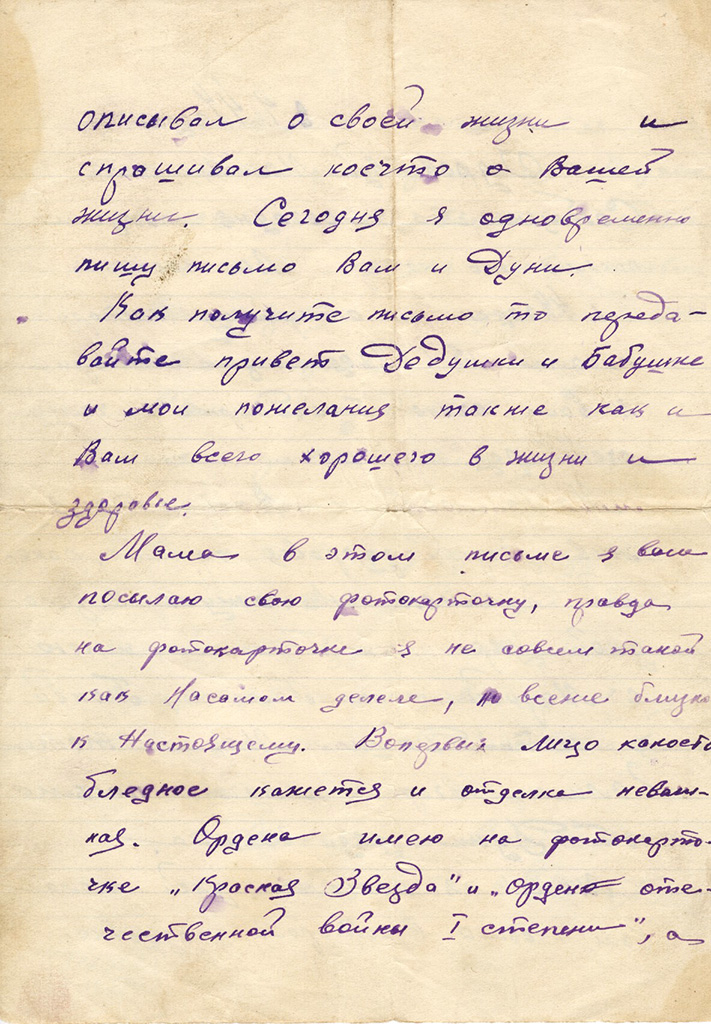 описывал о своей жизни и
спрашивал коечто о Вашей
жизни. Сегодня я одновременно
пишу письмо Вам и Дуни.
Как получите письмо то переда-
вайте привет Дедушки и Бабушке
и мои пожелания также как и
Вам всего хорошего в жизни и
здоровье.
Мама в этом письме я вам
посылаю свою фотокарточку, правда
на фотокарточке я не совсем такой
как Насомом делеле, но всеже близко
к Настоящему. Вопервых лицо какоето
бледное кажется и отделка неваж-
ная. Ордена имею на фотокарто-
чке „Красная Звезда" и „Орден отe-
чественной войны I степени", а